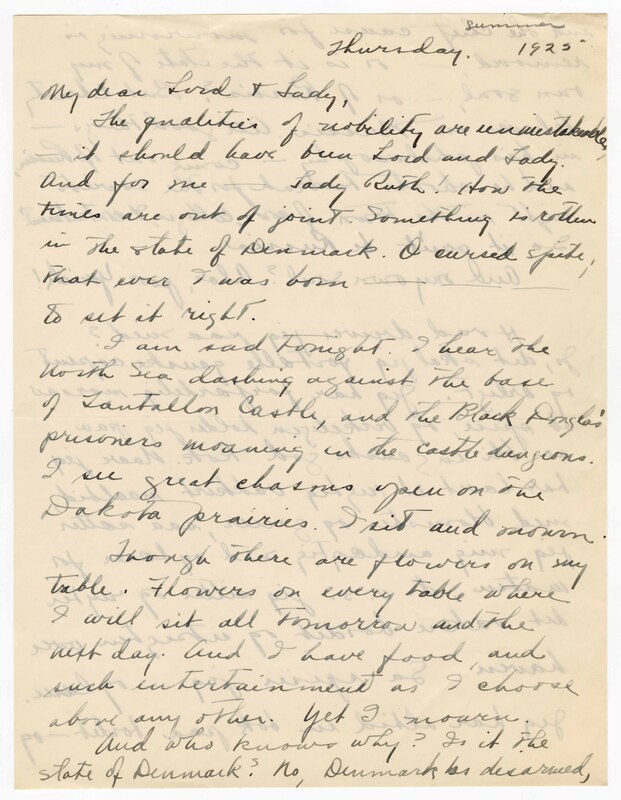 summer
Thursday. 1925
My dear Lord & Lady,
The qualities of nobility are unmistakable,
it should have been Lord and Lady.
And for me — Lady Ruth! How the
times are out of joint. Something is rotten
in the state of Denmark. O cursed spite,
that ever I was born
to set it right.
I am sad tonight. I hear the
North Sea dashing against the base
of Tantallon Castle, and the Black Douglas's
prisoners moaning in the castle dungeons.
I see great chasms open on the
Dakota prairies. I sit and mourn.
Though there are flowers on my
table. Flowers on every table where
I will sit all tomorrow and the
next day. And I have food, and
such entertainment as I choose
above any other. Yet I mourn.
And who knows why? Is it the
state of Denmark? No, Denmark has disarmed,